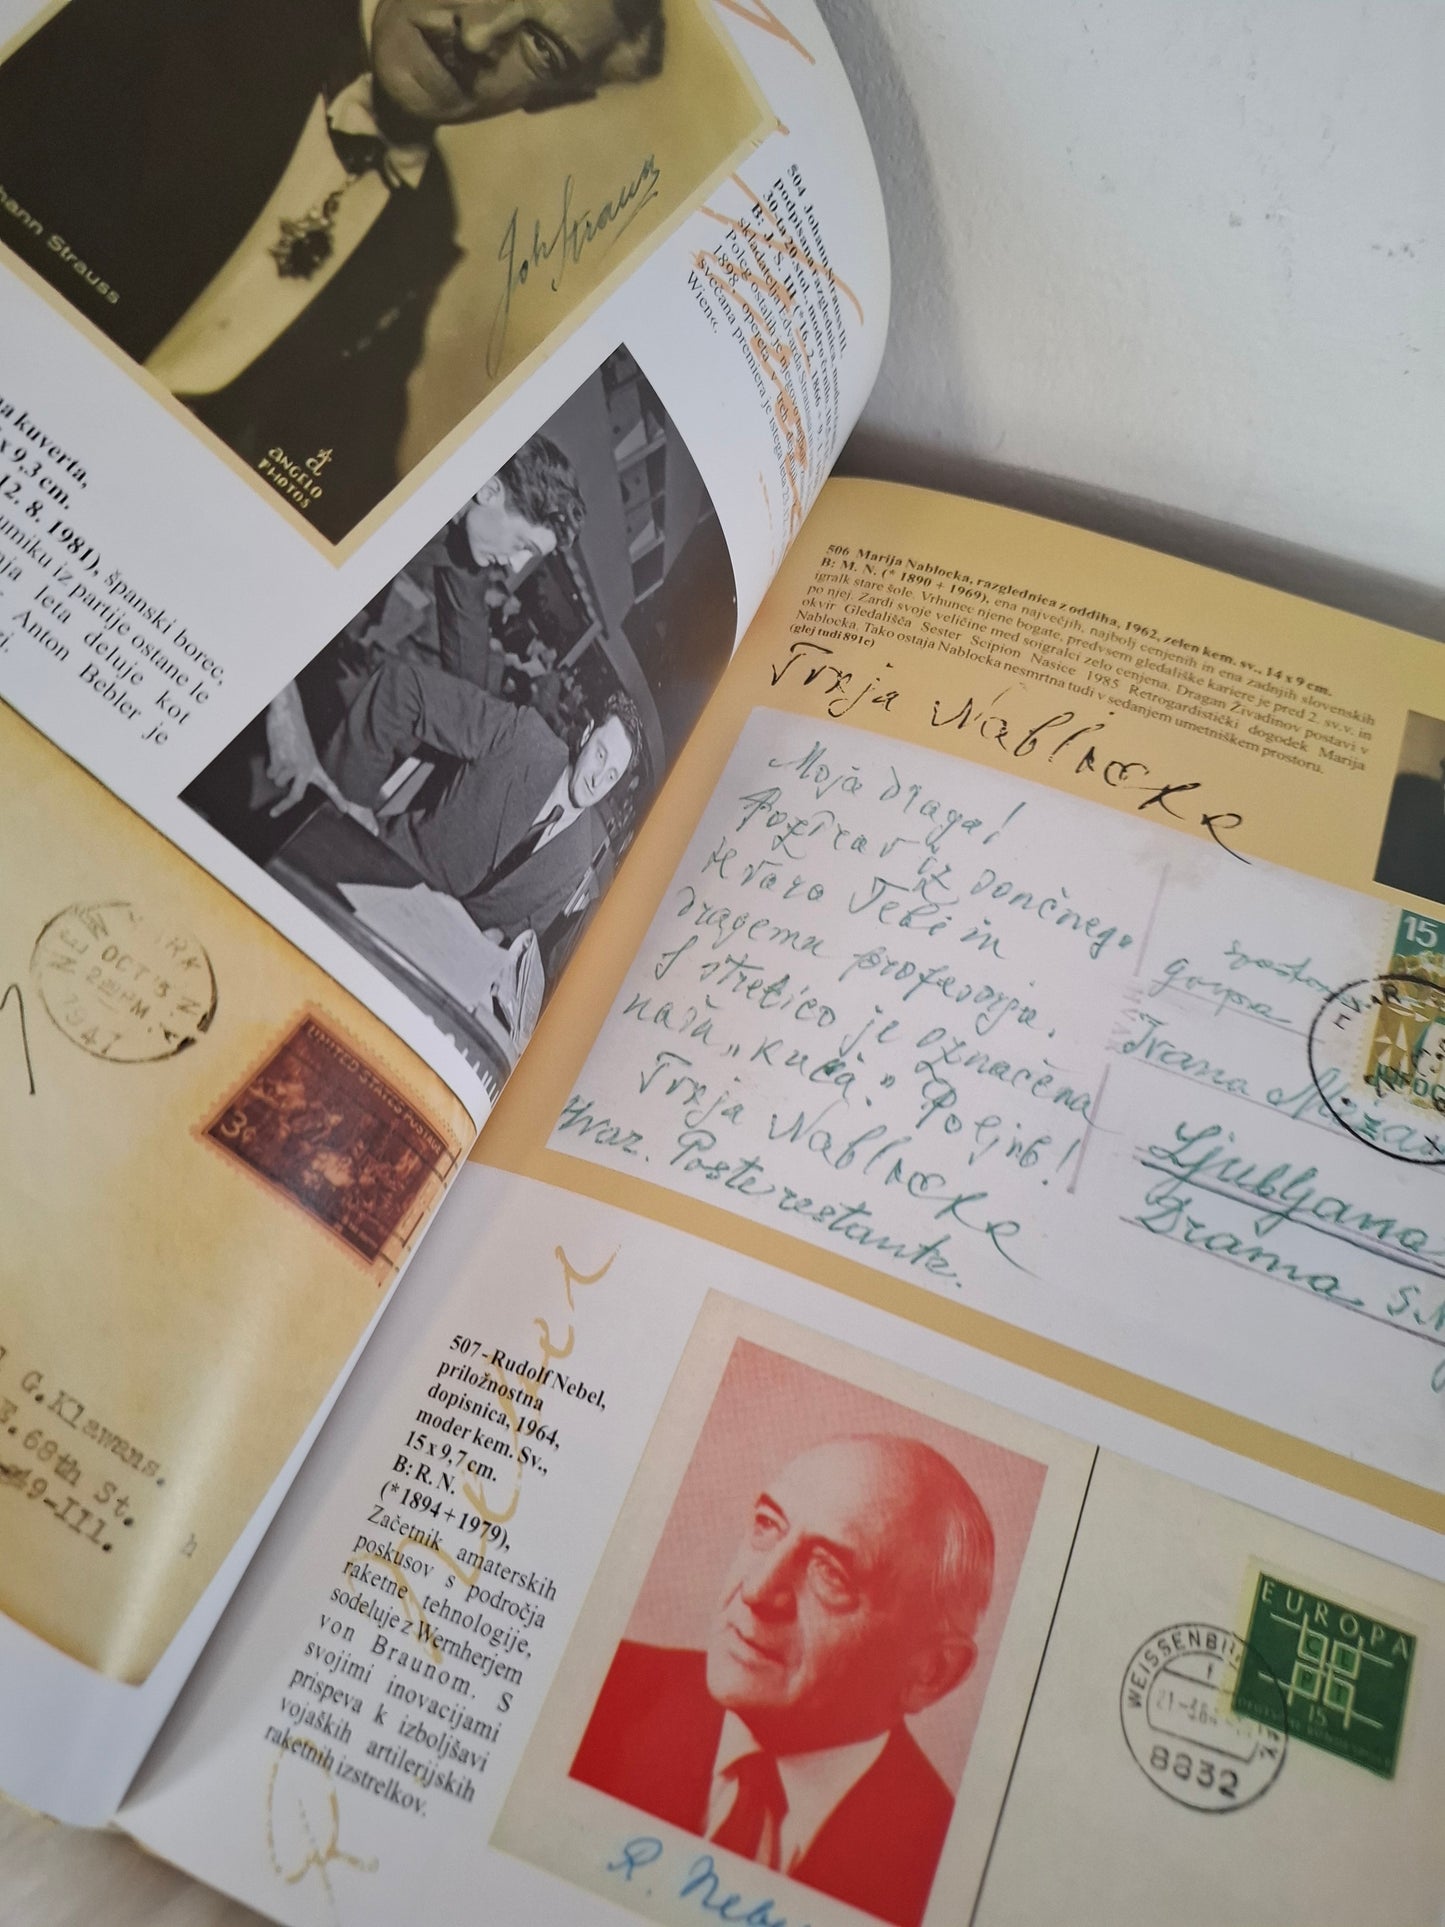 Johann Strauss
Joh Strauss
ANGELO
PHOTOS
504 Johann Strauss III,
podpisana razglednica,
30-ta 20. stol., modro črnilo,
B: J. S. III (* 16. 2. 1866 + 9. 1.
skladatelja Edvarda Straussa.
Poleg ostalih je njegova
1898, opereta v treh
svečana premiera je istega leta
Wien«.
kuverta,
x 9,3 cm.
12. 8. 1981), španski borec,
umiku iz partije ostane le
leta deluje kot
Anton Bebler je
NEW YORK
OCT 3
2 PM
1947
UNITED STATES POSTAGE
3¢
G. Klawans.
E. 68th St.
49-Ill.
h
506 Marija Nablocka, razglednica z oddiha, 1962, zelen kem. sv., 14 x 9 cm.
B: M. N. (* 1890 + 1969), ena največjih, najbolj cenjenih in ena zadnjih slovenskih
igralk stare šole. Vrhunec njene bogate, predvsem gledališke kariere je pred 2. sv.v. in
po njej. Zardi svoje veličine med soigralci zelo cenjena. Dragan Živadinov postavi v
okvir Gledališča Sester Scipion Nasice 1985 Retrogardistički dogodek Marija
Nablocka. Tako ostaja Nablocka nesmrtna tudi v sedanjem umetniškem prostoru.
(glej tudi 891c)
Tvoja Nablocka
Moja draga!
Pozdrav iz sončnega
Hvara Tebi in
dragemu profesorju.
S strelico je označena
naša „kuča." Poljub!
Tvoja Nablocka
Hvar. Poste restante.
Ivana
Ljubljana
Drama S.N.
HVAR
15
507 - Rudolf Nebel,
priložnostna
dopisnica, 1964,
moder kem. Sv.,
15 x 9,7 cm.
B: R. N.
(* 1894 + 1979),
Začetnik amaterskih
poskusov s področja
raketne tehnologije,
sodeluje z Wernherjem
von Braunom. S
svojimi inovacijami
prispeva k izboljšavi
vojaških artilerijskih
raketnih izstrelkov.
R. Nebel
EUROPA
CEPT
15
WEISSENBURG
8832